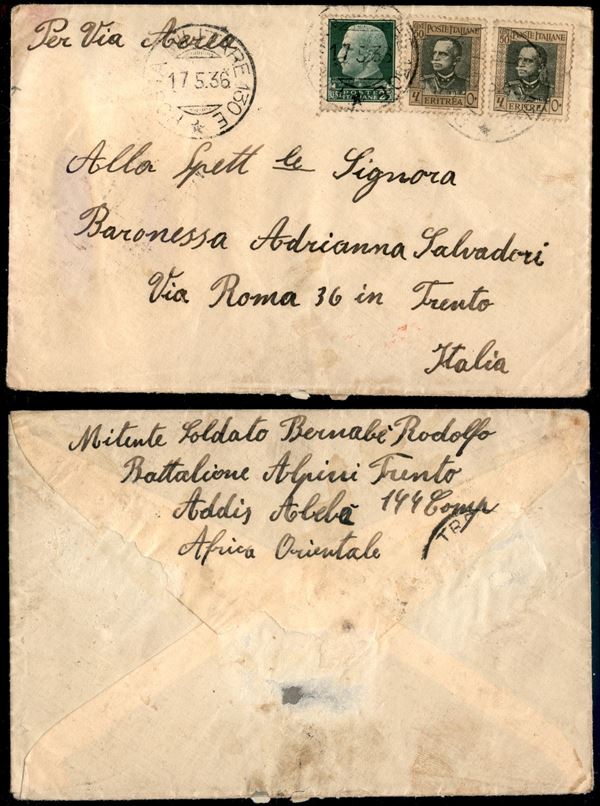 Per Via Aerea
17.5.36
130 E
17.5.36
POSTE ITALIANE
POSTE ITALIANE
ERITREA
POSTE ITALIANE
ERITREA
Alla Spett le Signora
Baronessa Adrianna Salvadori
Via Roma 36 in Trento
Italia
Mitente Soldato Bernabè Rodolfo
Battalione Alpini Trento
Addis Abeba 144 Comp
Africa Orientale
TR